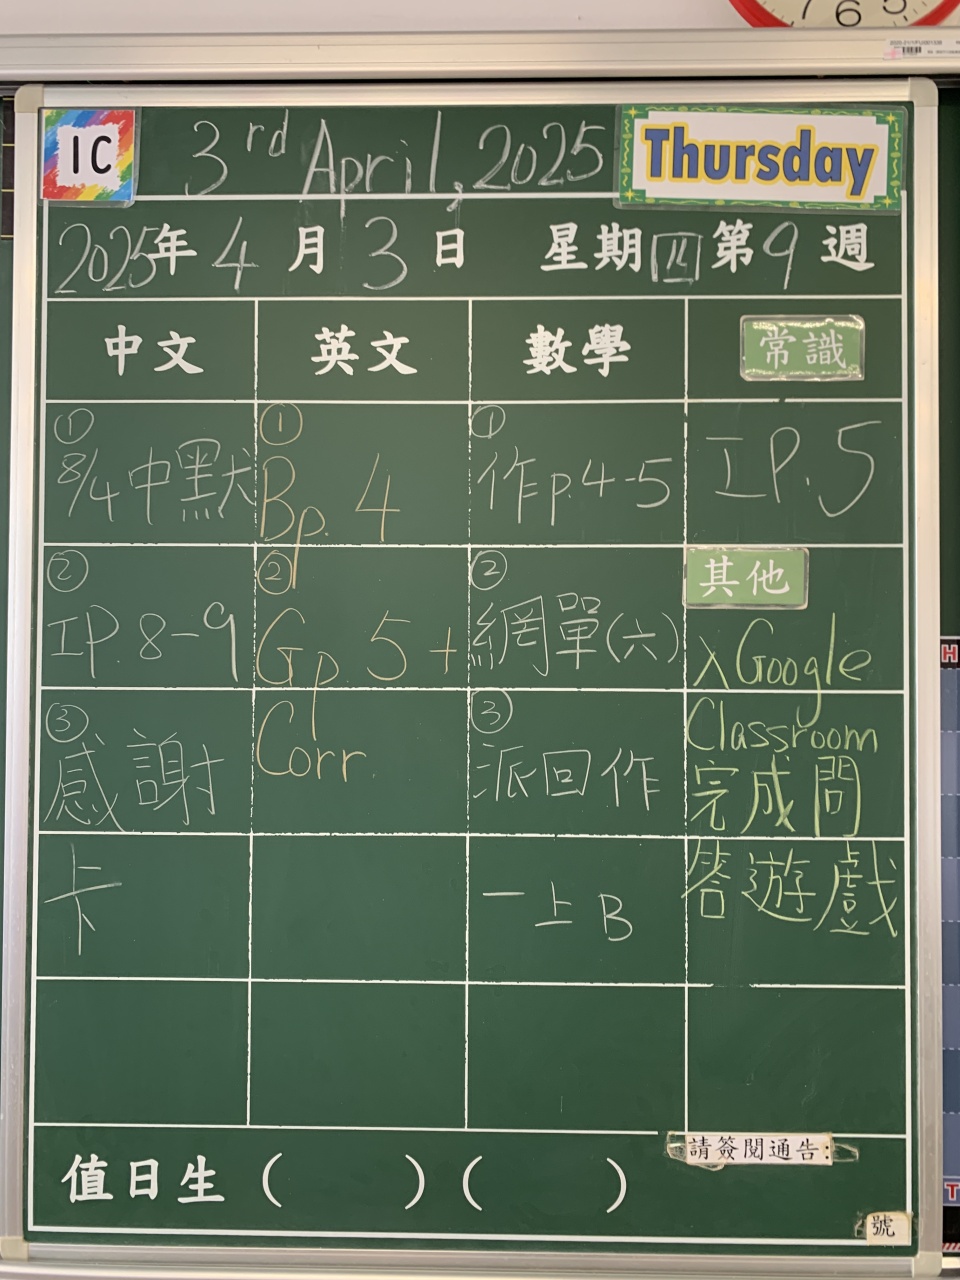 7 6 5
1C 3rd April, 2025 Thursday
2025年4月3日 星期四第9週
中文 英文 數學 常識
①
8/4中默
②
工P.8-9
③
感謝
卡
①
Bp. 4
②
Gp. 5 +
Corr.
①
作p.4-5
②
網單(六)
③
派回作
一上B
工P.5
其他
入Google
Classroom
完成問
答遊戲
值日生( )( )
請簽閱通告:
號
H
T